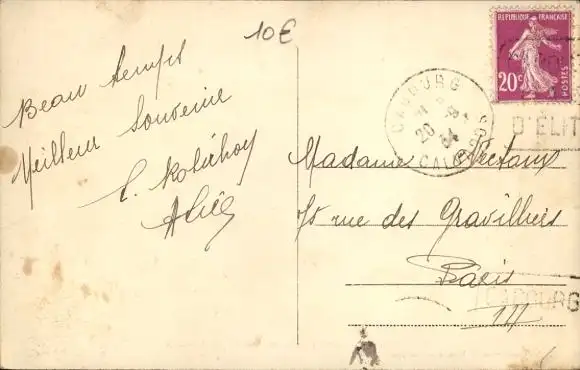 10€
Beau temps
Meilleur Souvenir
Alice
REPUBLIQUE FRANÇAISE
20c
POSTES
CABOURG
20
34
CALVADOS
D'ÉLIT
Madame
rue des Gravilliers
Paris
CABOURG
III